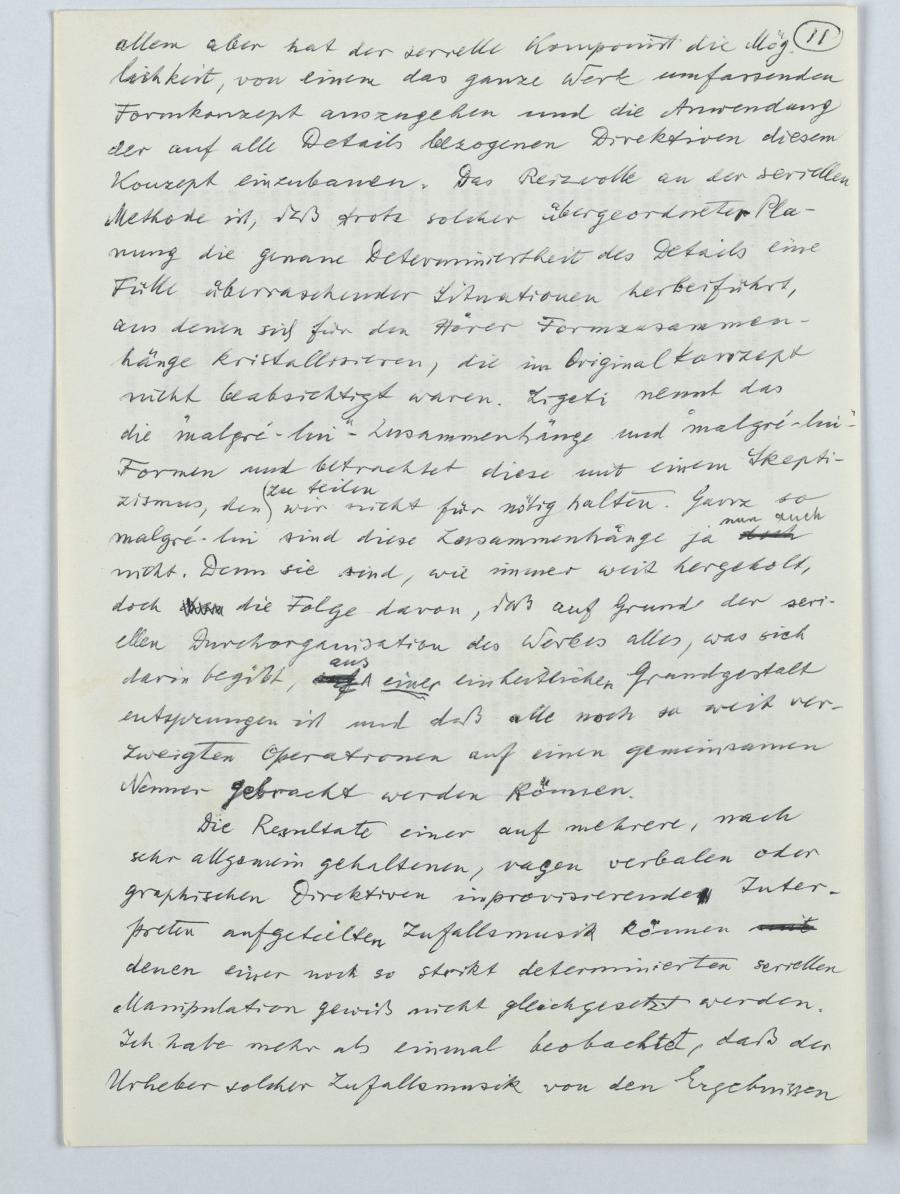 11
allem aber hat der serielle Komponist die Mög-
lichkeit, von einem das ganze Werk umfassenden
Formkonzept auszugehen und die Anwendung
der auf alle Details bezogenen Direktiven diesem
Konzept einzubauen. Das Reizvolle an der seriellen
Methode ist, daß trotz solcher übergeordneter Pla-
nung die genaue Determiniertheit des Details eine
Fülle überraschender Situationen herbeiführt,
aus denen sich für den Hörer Formzusammen-
hänge kristallisieren, die im Originalkonzept
nicht beabsichtigt waren. Ligeti nennt das
die "malgré-lui"-Zusammenhänge und "malgré-lui"-
Formen und betrachtet diese mit einem Skepti-
zu teilen
zismus, den wir nicht für nötig halten. Ganz so
nun auch
malgré-lui sind diese Zusammenhänge ja doch
nicht. Denn sie sind, wie immer weit hergeholt,
doch die Folge davon, daß auf Grund der seri-
ellen Durchorganisation des Werkes alles, was sich
aus
darin begibt, auf einer einheitlichen Grundgestalt
entsprungen ist und daß alle noch so weit ver-
zweigten Operationen auf einen gemeinsamen
Nenner gebracht werden können.
Die Resultate einer auf mehrere, nach
sehr allgemein gehaltenen, vagen verbalen oder
graphischen Direktiven improvisierende Inter-
preten aufgeteilten Zufallsmusik können mit
denen einer noch so strikt determinierten seriellen
Manipulation gewiß nicht gleichgesetzt werden.
Ich habe mehr als einmal beobachtet, daß der
Urheber solcher Zufallsmusik von den Ergebnissen